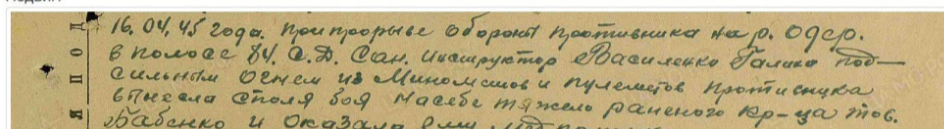 16.04.45 года. при прорыве обороны противника на р. Одер.
в полосе 84. С.Д. Сан. инструктор Василенко Галина под
сильным огнем из минометов и пулеметов противника
вынесла с поля боя на себе тяжело раненого кр-ца тов.
Бабенко и оказала ему